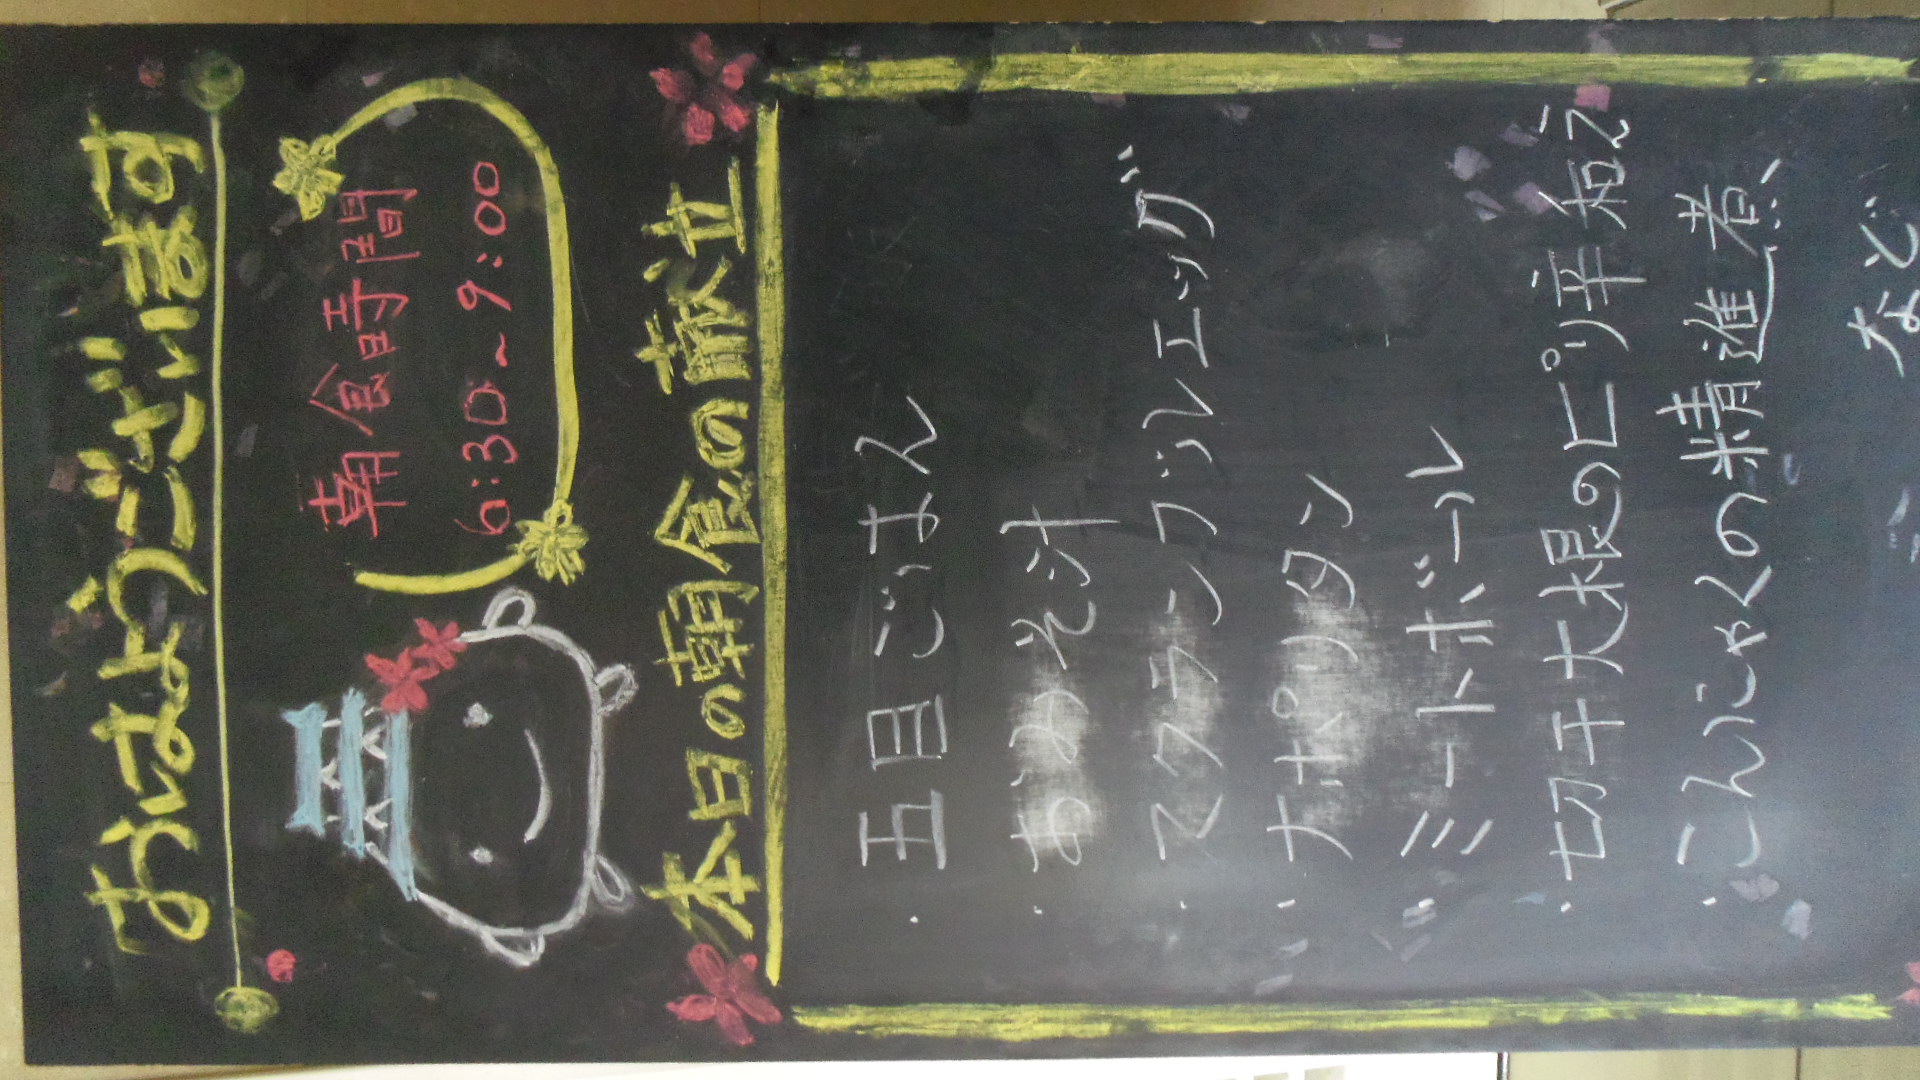 おはようございます
朝食時間
6:30~9:00
本日の朝食の献立
・五目ごはん
・おみそ汁
・スクランブルエッグ
・ナポリタン
・ミートボール
・切干大根のピリ辛和え
・こんにゃくの精進煮、
など